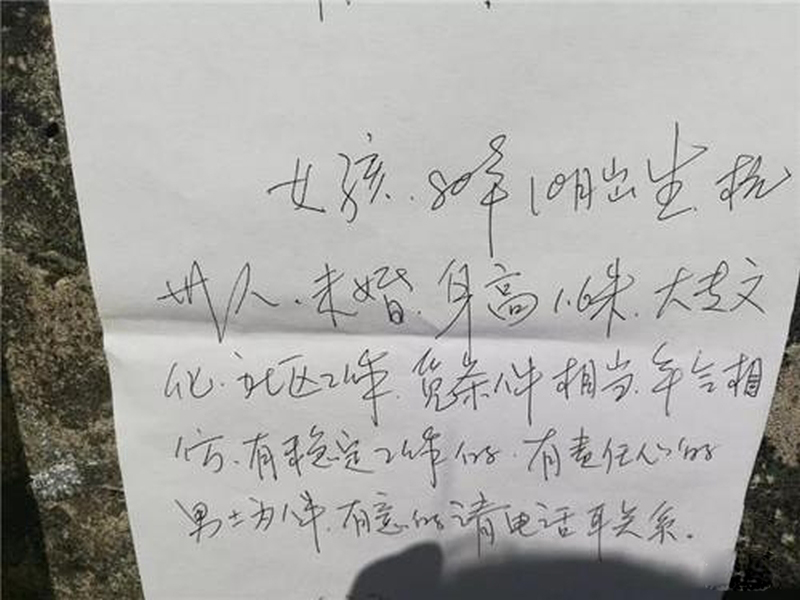 女孩.80年10月出生.杭
州人.未婚.身高1.6米.大专文
化.社区工作.觅条件相当.年令相
仿.有稳定工作的.有责任心的
男士为伴.有意的请电话联关系.